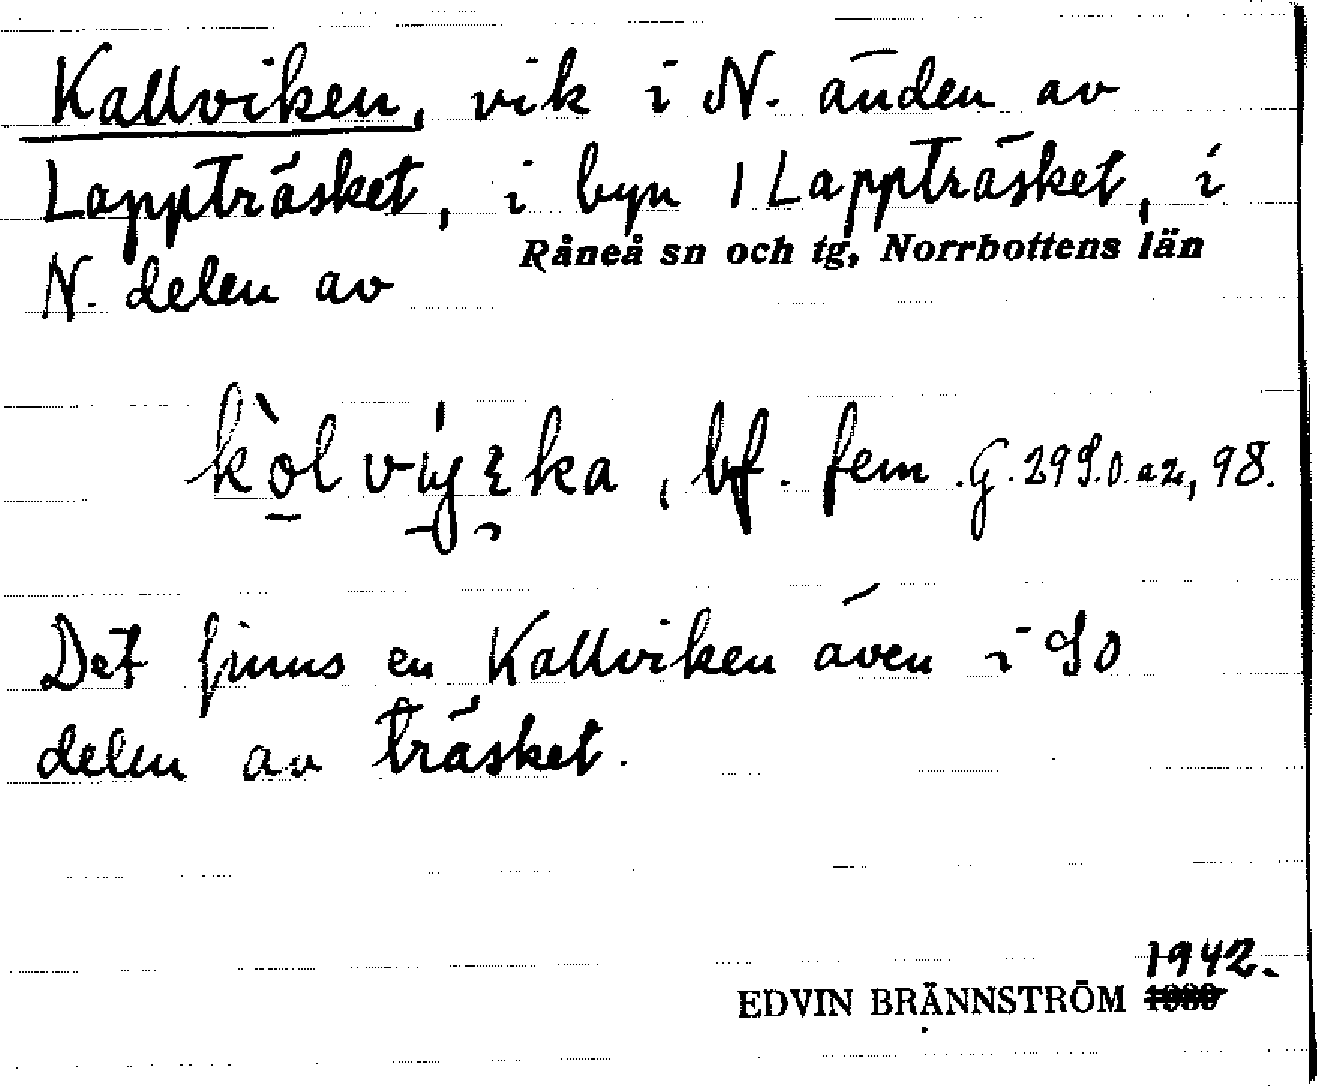 Kallviken, vik i N. änden av
Lappträsket, i byn 1 Lappträsket, i
Råneå sn och tg, Norrbottens län
N. delen av
bf. fem. G.
98.
Det finns en Kallviken även i SO
delen av träsket.
1942.
EDVIN BRÄNNSTRÖM